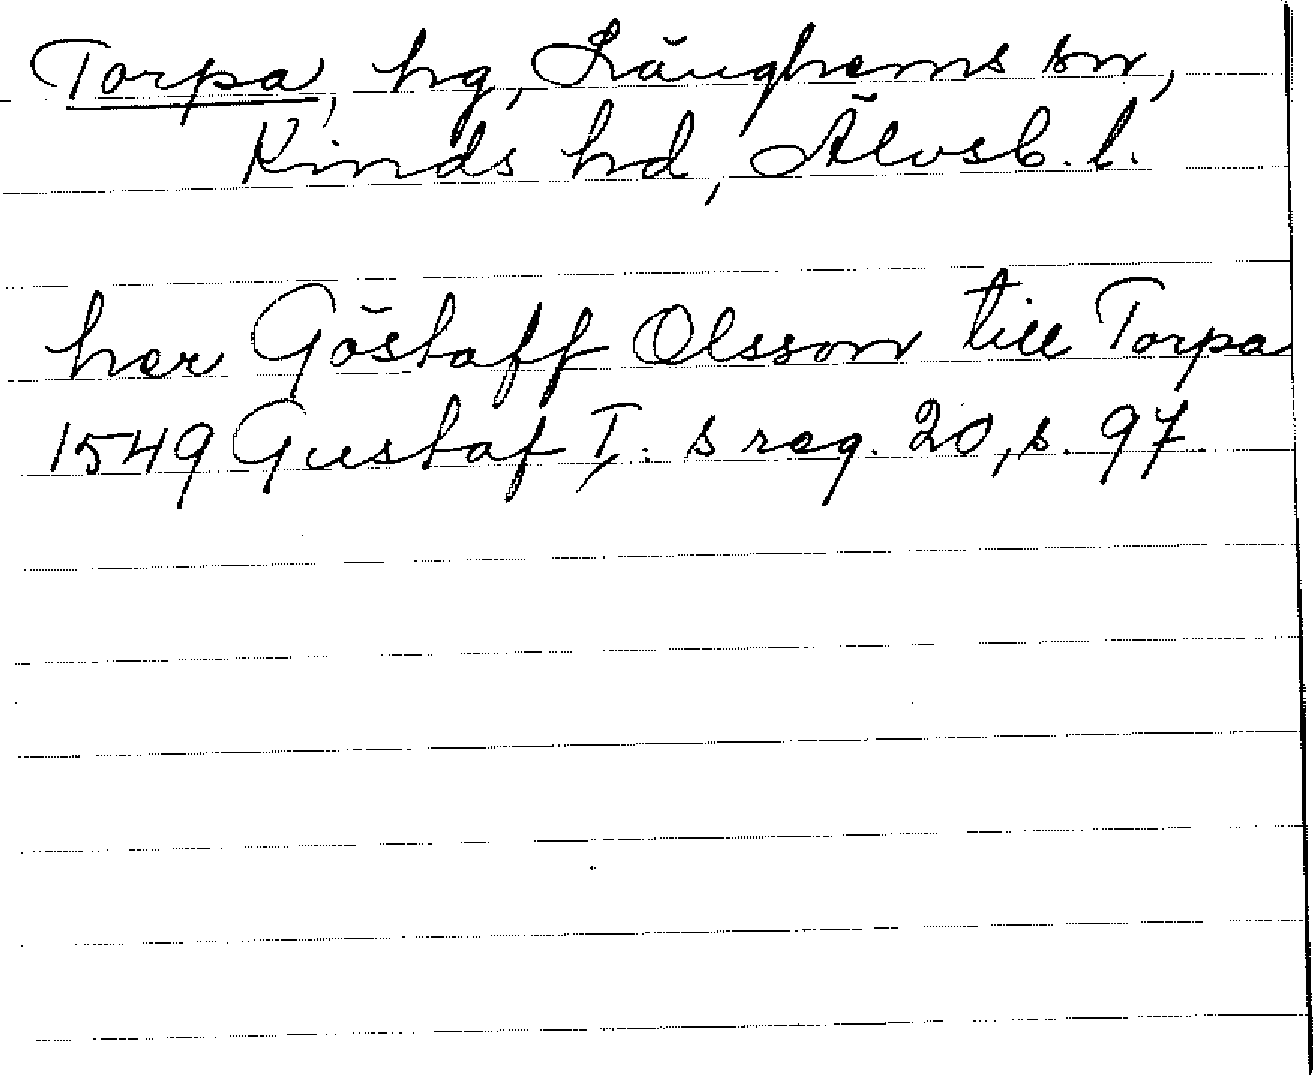 Torpa, hg, Länghems sn,
Kinds hd, Älvsb. l.
her Göstaff Olsson till Torpa
1549 Gustaf I. s reg. 20, s. 97